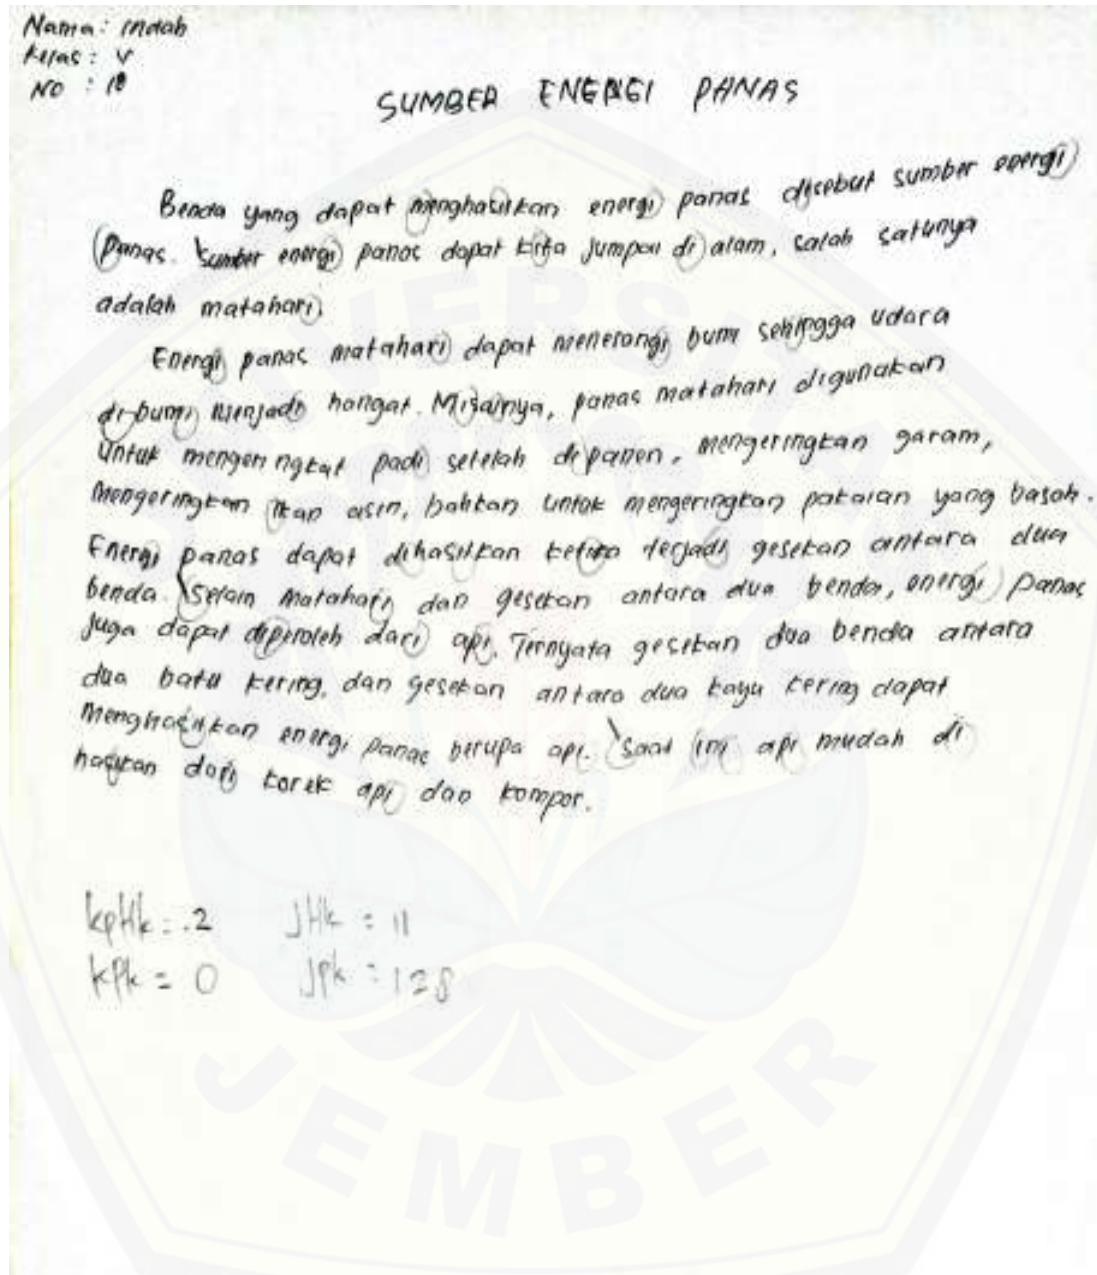 Nama: Indah
Kelas: V
NO : 18
SUMBER ENERGI PANAS
Benda yang dapat menghasilkan energi panas disebut sumber energi
panas. Sumber energi panas dapat kita jumpai di alam, salah satunya
adalah matahari.
Energi panas matahari dapat menerangi bumi sehingga udara
di bumi menjadi hangat. Misalnya, panas matahari digunakan
untuk mengeringkat padi setelah dipanen, mengeringkan garam,
mengeringkan ikan asin, bahkan untuk mengeringkan pakaian yang basah.
Energi panas dapat dihasilkan ketika terjadi gesekan antara dua
benda. Selain matahari dan gesekan antara dua benda, energi panas
juga dapat diperoleh dari api. Ternyata gesekan dua benda antara
dua batu kering, dan gesekan antara dua kayu kering dapat
menghasilkan energi panas berupa api. Saat ini api mudah di
hasilkan dari korek api dan kompor.
kpHk = 2 JHk = 11
kPk = 0 JPk = 128
JEMBER